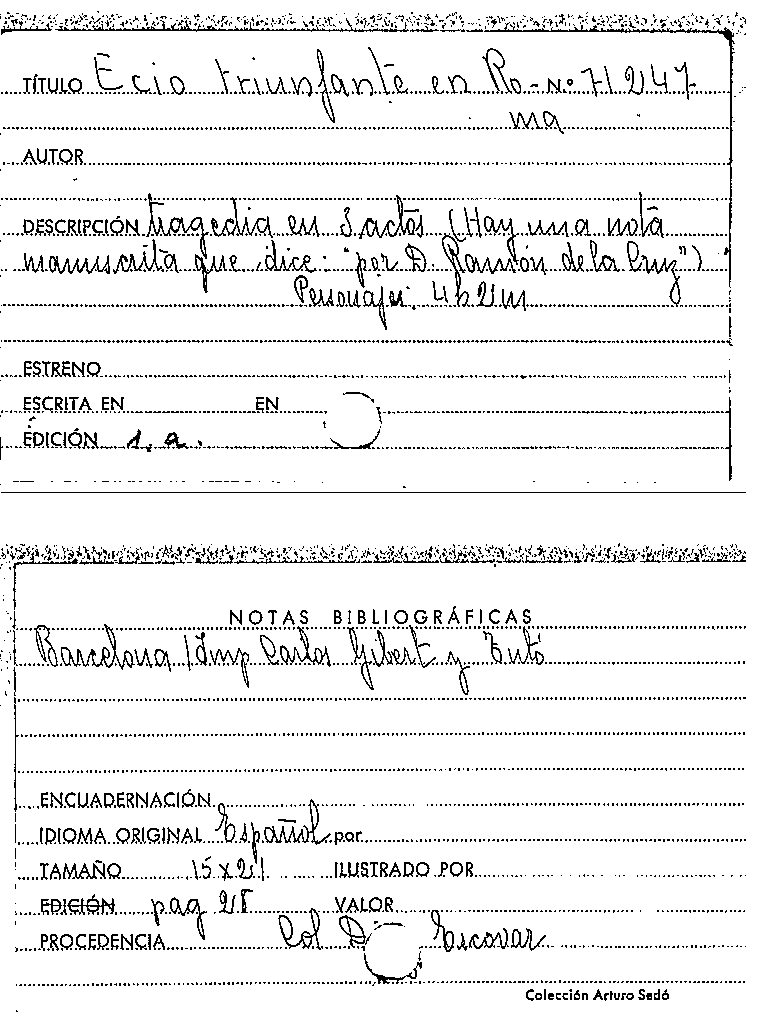 TÍTULO Ecio triunfante en Ro- N.º 71247
ma
AUTOR
DESCRIPCIÓN tragedia en 3 actos (Hay una nota
manuscrita que dice: "por D. Ramón de la Cruz")
Personajes: 4h 2m
ESTRENO
ESCRITA EN EN
EDICIÓN 1.a.
NOTAS BIBLIOGRÁFICAS
Barcelona / Imp Carlos Gibert y Tutó
ENCUADERNACIÓN
IDIOMA ORIGINAL Español por
TAMAÑO 15x21 ILUSTRADO POR
EDICIÓN pag VALOR
PROCEDENCIA Col Escovar
Colección Arturo Sedó